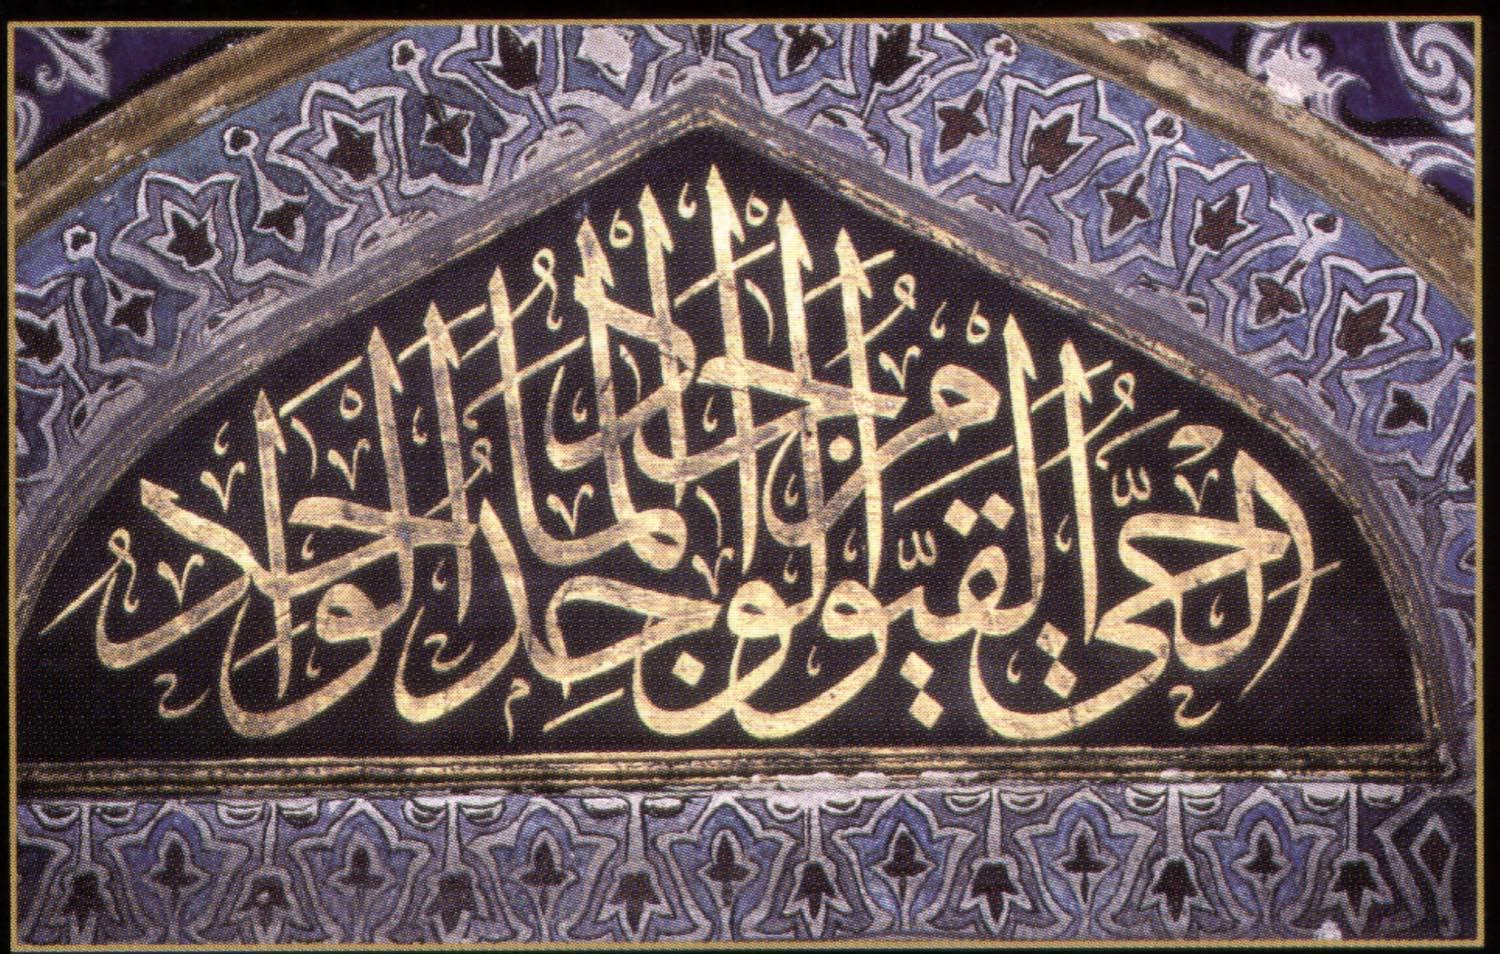 الحي القيوم الواجد الماجد الواحد